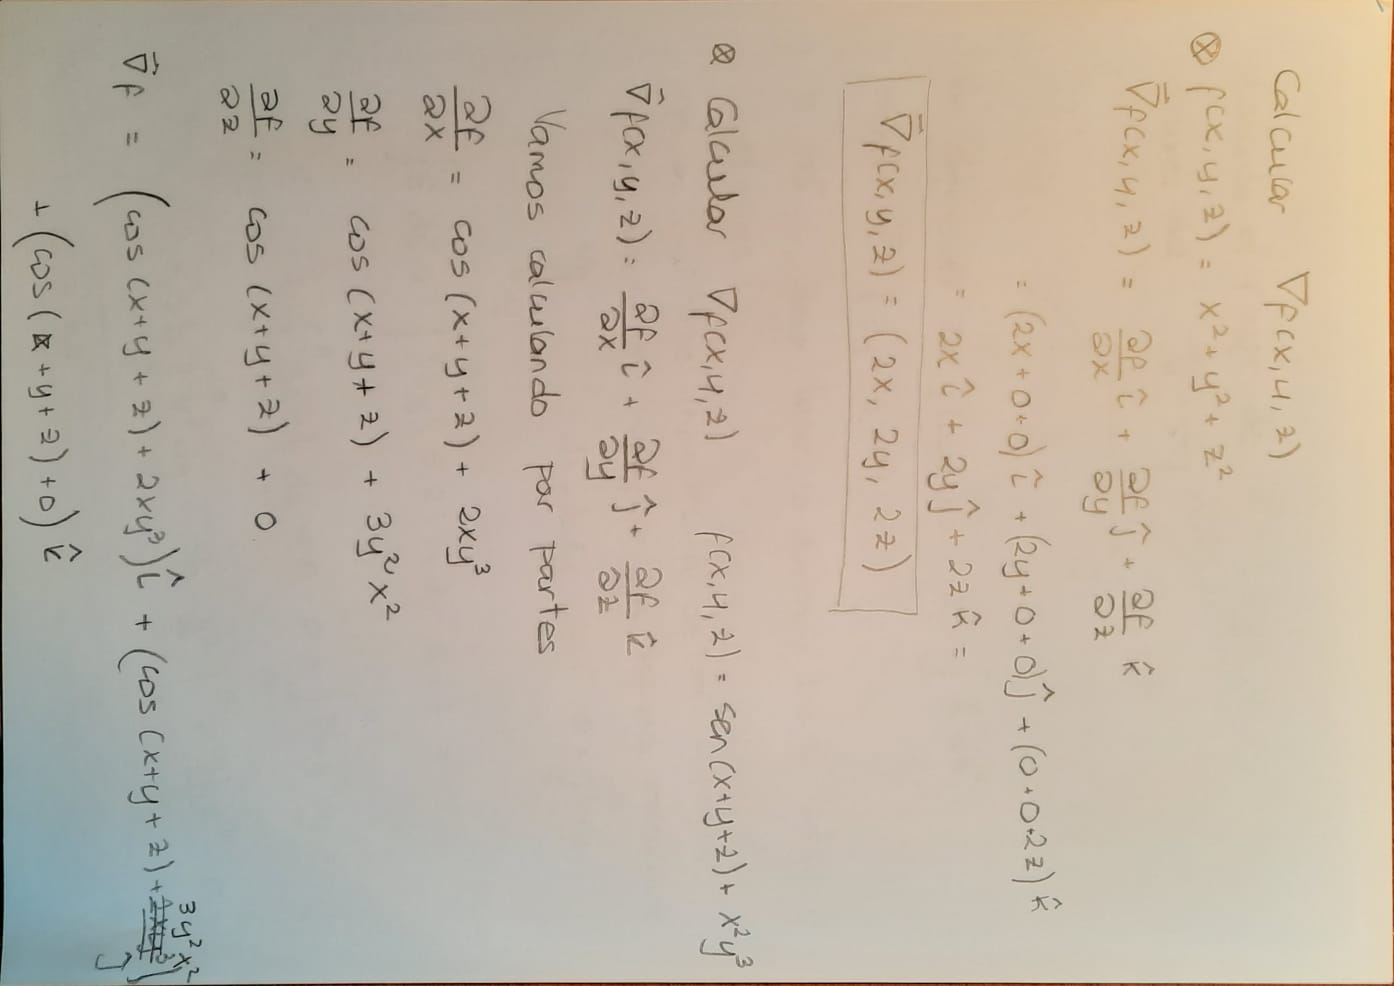 Calcular ∇f(x,y,z)
⊗ f(x,y,z) = x² + y² + z²
∇̄f(x,y,z) = ∂f/∂x î + ∂f/∂y ĵ + ∂f/∂z k̂
= (2x+0+0) î + (2y+0+0) ĵ + (0+0+2z) k̂
= 2x î + 2y ĵ + 2z k̂ =
∇̄f(x,y,z) = (2x, 2y, 2z)
⊗ Calcular ∇f(x,y,z) f(x,y,z) = sen(x+y+z) + x²y³
∇̄f(x,y,z) = ∂f/∂x î + ∂f/∂y ĵ + ∂f/∂z k̂
Vamos calculando por partes
∂f/∂x = cos(x+y+z) + 2xy³
∂f/∂y = cos(x+y+z) + 3y²x²
∂f/∂z = cos(x+y+z) + 0
∇̄f = (cos(x+y+z) + 2xy³) î + (cos(x+y+z) + 3y²x²) ĵ
+ (cos(x+y+z)+0) k̂